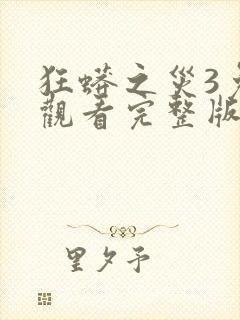 狂蟒之災3免
觀看完整版
里夕予